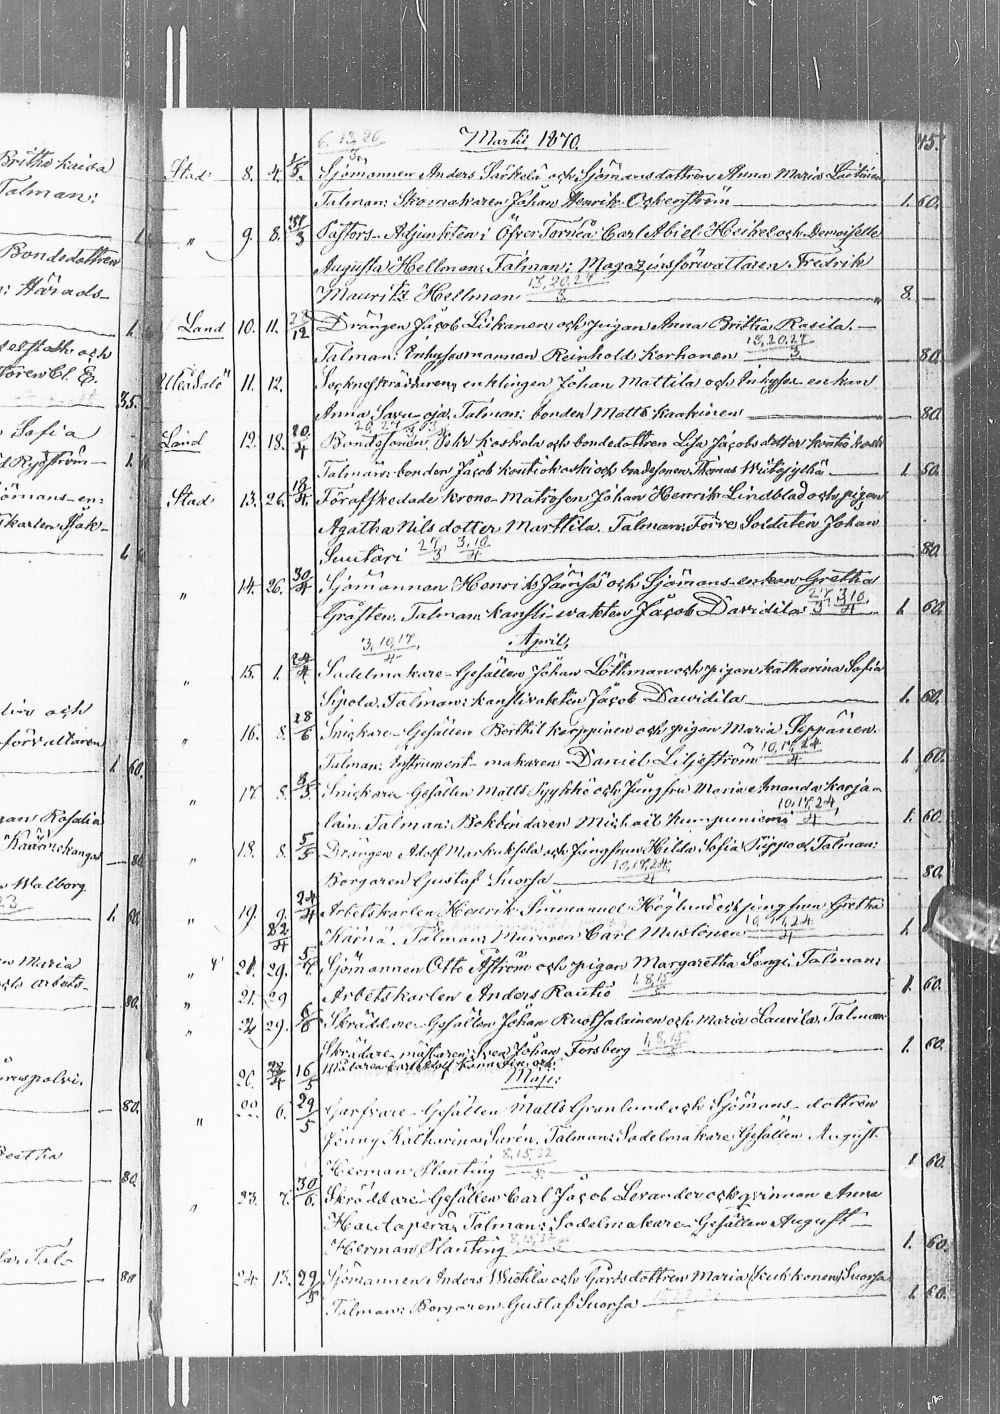 Martii 1870.
45.
6. 13. 20
3.
Stad 8. 4. 1/5. Sjömannen Anders Särkelä och Sjömansdottren Anna Maria
Talman: Skomakaren Johan Henrik Ockerström 1. 60.
" 9. 8. Pastors-Adjunkten i Öfver Torneå Carl Abiel Heikel och Demoiselle
Augusta Hellman; Talman: Magazinsförwaltaren Fredrik
Mauritz Hellman 13, 20, 27/3 8. —
Land 10. 11. 28/12 Drängen Jacob Liikanen och pigan Anna Britha Rasila. —
Talman: Inhysesmannen Reinhold Korhonen 13, 20, 27/3 80.
Uleåsalo 11. 12. Sockneskräddaren, enklingen Johan Mattila och Inhyses enkan
Anna Talman: bonden Matts Kaakinen 80.
Land 12. 18. 20/4 Bondesonen Koskela och bondedottren Lisa Jacobsdotter
Talmän: bonden Jacob Kontiokoski och bondesonen Thomas 1. 50.
Stad 13. 26. 18/4. Förafskedade Krono-Matrosen Johan Henrik Lindblad och pigan
Agatha Nilsdotter Marttila. Talman: Förre Soldaten Johan
Suutari 27/3, 3, 10/4 80.
" 14. 26. 30/4 Sjömannen Henrik Jämsä och Sjömans-enkan Gretha
Talman: Kansli-wakten Jacob Davidila 27/3, 3, 10/4 1. 60.
April,
3, 10, 17/4
" 15. 1. 24/4 Sadelmakare-Gesällen Johan Löthman och pigan Katharina Sofia
Sipola. Talman: Kansliwakten Jacob Dawidila 1. 60.
" 16. 8. 18/6 Snickare-Gesällen Berthil Karppinen och pigan Maria Seppänen.
Talman: Instrument-makaren Daniel Liljeström 10, 17, 24/4 1. 60.
" 17. 8. 8/5. Snickare-Gesällen Matts Tyykkö och Jungfru Maria Amanda Karja-
lain. Talman: Bokbindaren Michael Kumpuniemi 10, 17, 24/4 1. 60.
" 18. 8. 5/5 Drängen Adolf och Jungfrun Hilda Sofia Talman:
Borgaren Gustaf Suorsa 10, 17, 24/4 80.
" 19. 9. 24/4 Arbetskarlen Henrik Immanuel Höglund och jungfrun Gretha
Kärnä. Talman: Muraren Carl Mustonen 10, 17, 24/4 1.
" 21. 29. Sjömannen Otto Åström och pigan Margaretha Songi. Talman:
" 21. 29 Arbetskarlen Anders Rautio 1, 8, 15/5 1. 60.
" 29. 6/6 Skräddare-Gesällen Johan Ruotsalainen och Maria Laurila. Talman
Skräddare-mästaren Sven Johan Forsberg 1, 8, 15/5 1. 60.
20. 16/5 Målaren Carl Adolf
Maji:
" 22. 6. 29/5 Garfvare-Gesällen Matts Granlund och Sjömans-dottren
Jenny Katharina Sarén. Talman: Sadelmakare Gesällen August
Herman Planting 8, 15, 22/5 1. 60.
" 23. 7. 30/6. Skräddare-Gesällen Carl Jacob Levander och qvinnan Anna
Hautaperä. Talman: Sadelmakare-Gesällen August
Herman Planting 1. 60.
24. 13. 29/5 Sjömannen Anders Wiotila och Gårdsdottren Maria (Kukkonen) Suorsa
Talman: Borgaren Gustaf Suorsa 1. 60.
Britha Kaisa
Talman:
Bondedottren
Härads-
35.
Sofia
karlen
förvaltaren
Rosalia
Walborg
Maria
80.
80.
80.
80.